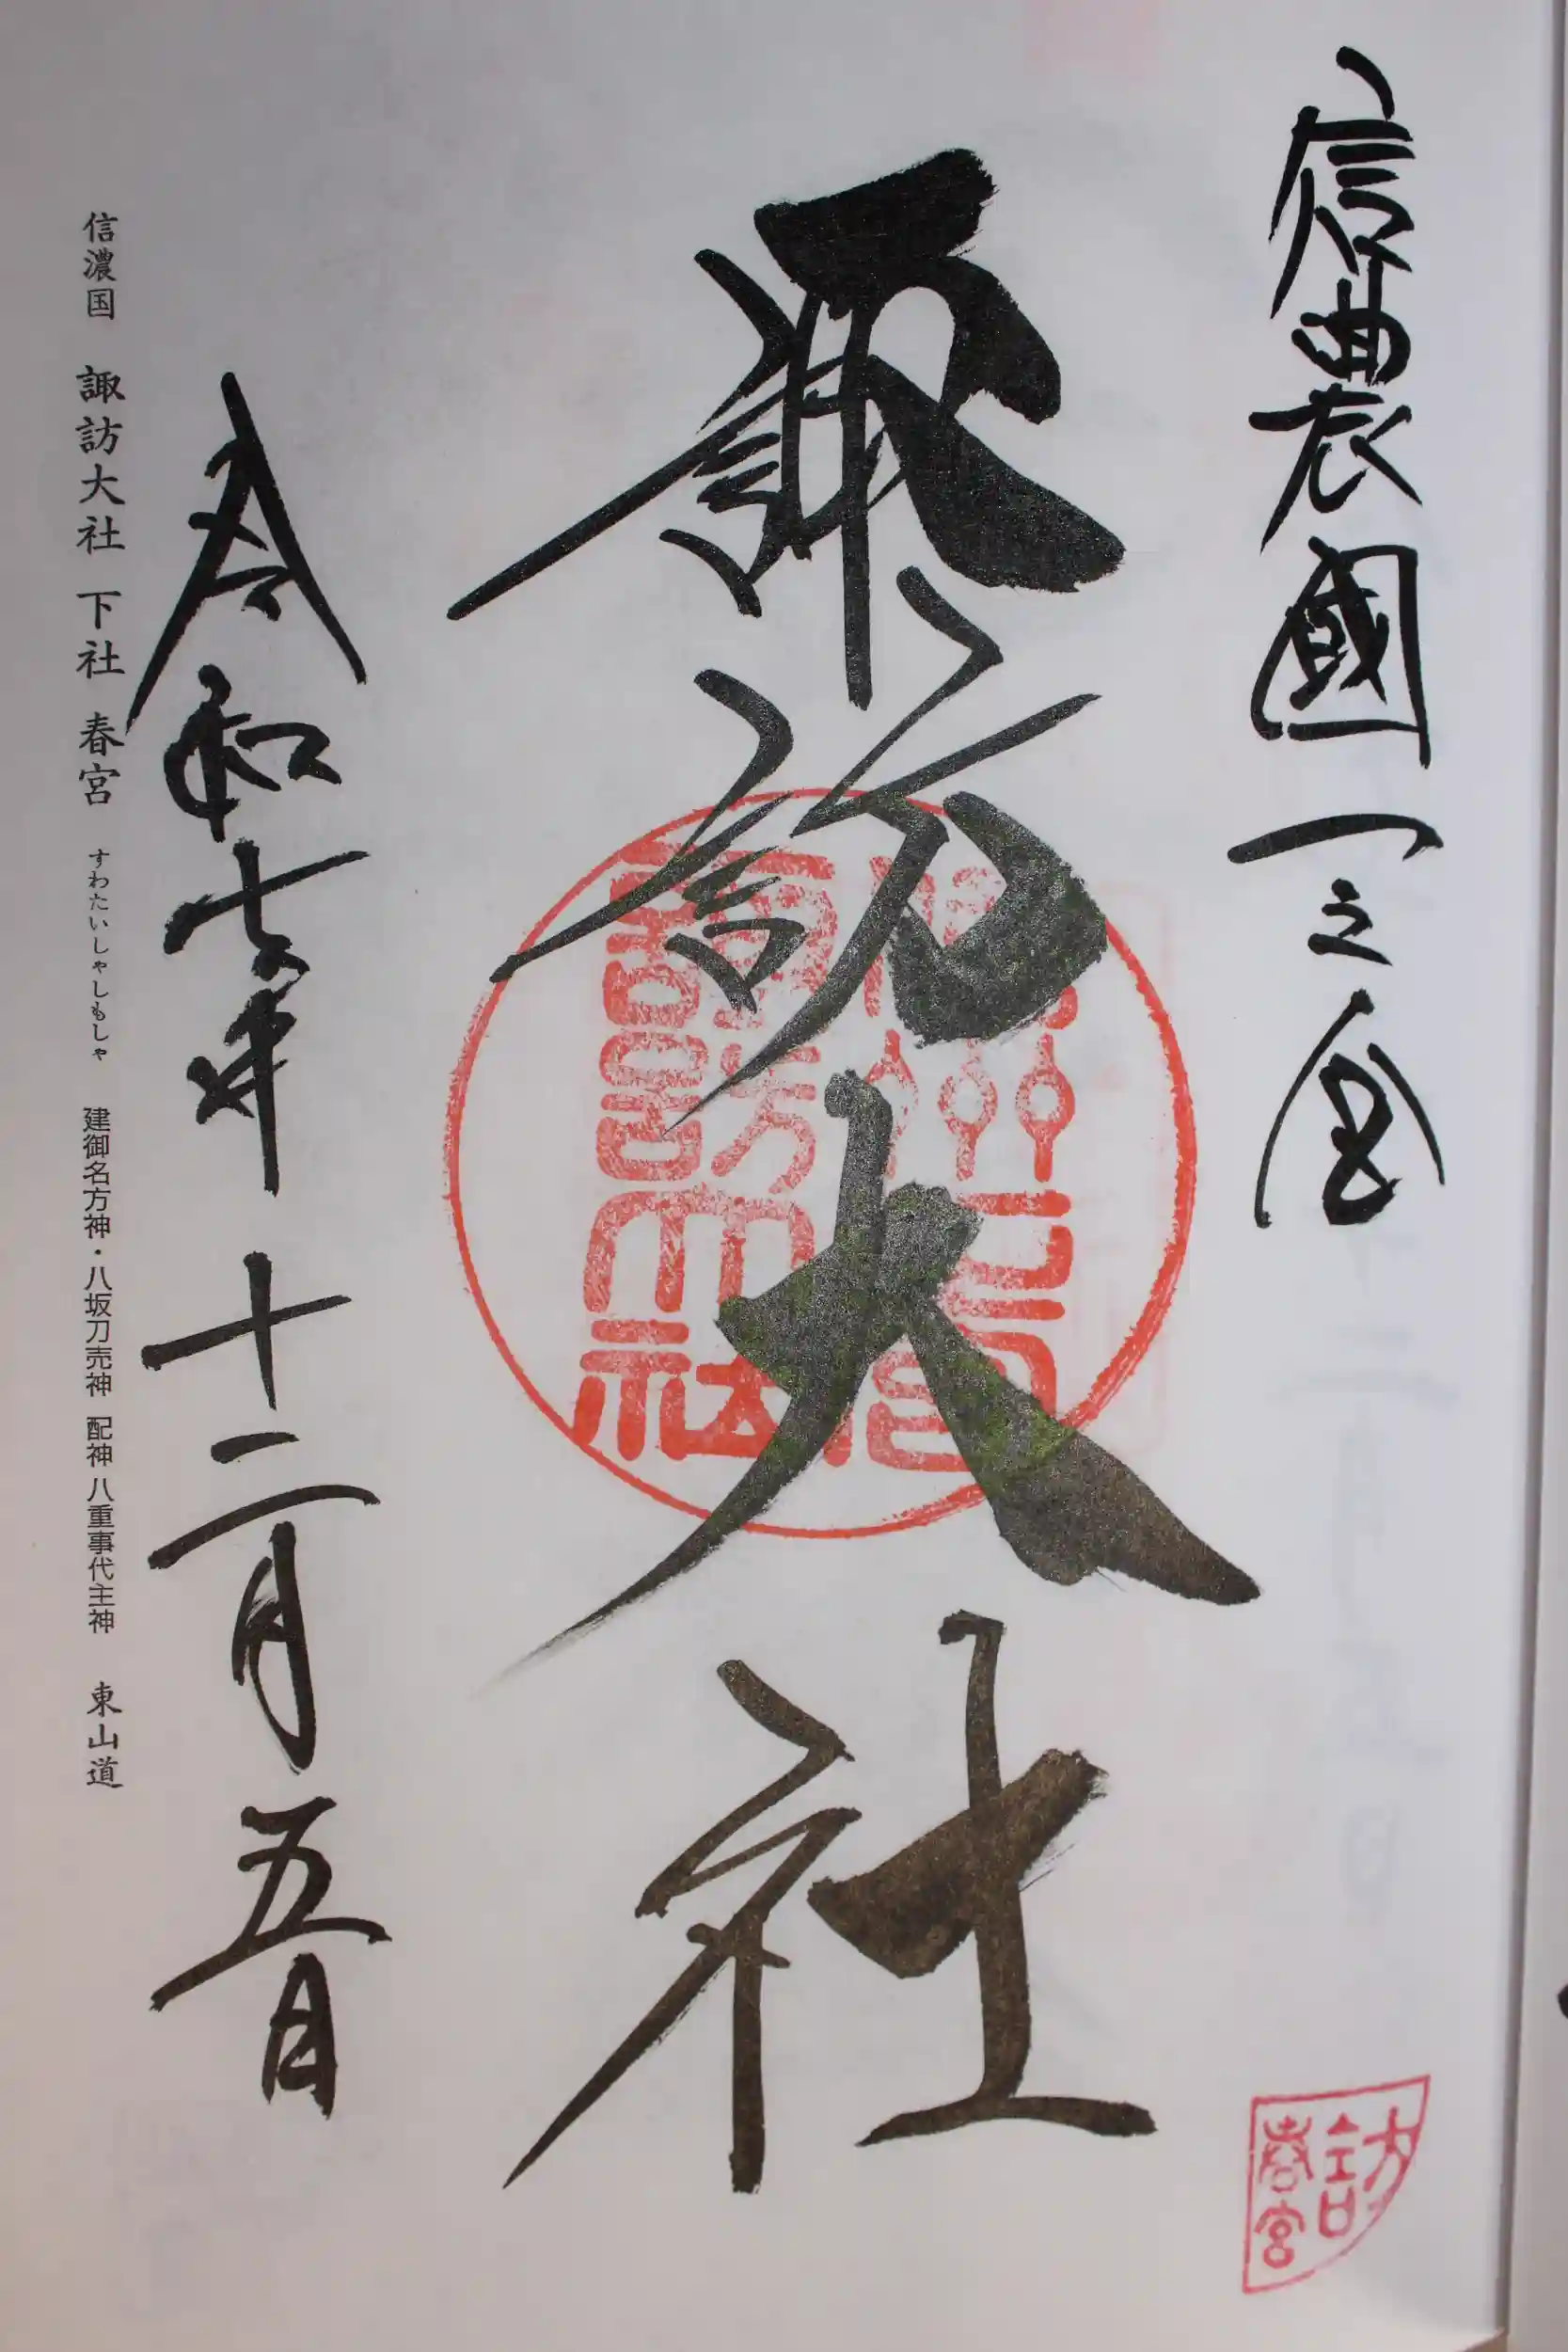 信農國一之宮
諏訪大社
令和七年十二月五日
信濃国 諏訪大社 下社 春宮 すわたいしゃしもしゃ 建御名方神・八坂刀売神 配神 八重事代主神 東山道
諏訪大社
訪
春宮